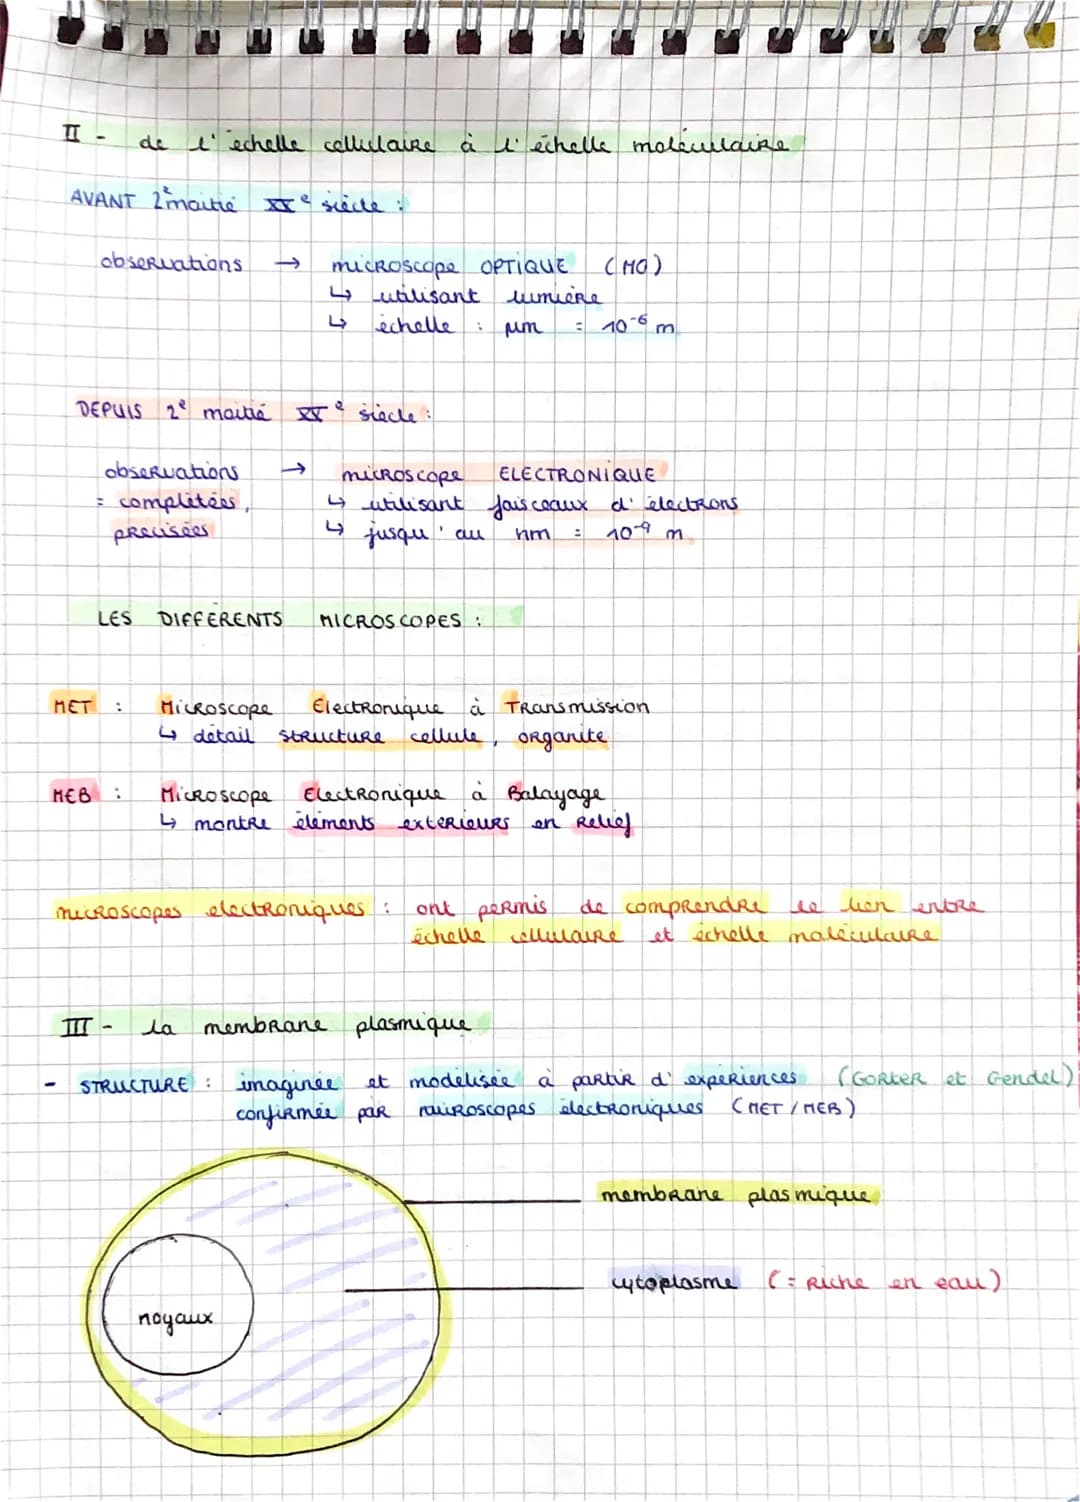 II - de l'échelle cellulaire à l'échelle moléculaire
AVANT 2e moitié XXe siècle :
observations → microscope OPTIQUE (MO)
↳ utilisant lumière
↳ échelle : μm = 10⁻⁶ m
DEPUIS 2e moitié XXe siècle :
observations → microscope ELECTRONIQUE
= complétées, ↳ utilisant faisceaux d'électrons
précisées ↳ jusqu'au nm = 10⁻⁹ m
LES DIFFÉRENTS MICROSCOPES :
MET : Microscope Electronique à Transmission
↳ détail structure cellule, organite
MEB : Microscope Electronique à Balayage
↳ montre éléments extérieurs en relief
microscopes electroniques : ont permis de comprendre le lien entre
échelle cellulaire et échelle moléculaire
III - la membrane plasmique
- STRUCTURE : imaginée et modélisée à partir d'expériences (GORTER et Gendel)
confirmée par microscopes électroniques (MET / MEB)
membrane plasmique
cytoplasme (= Riche en eau)
noyaux